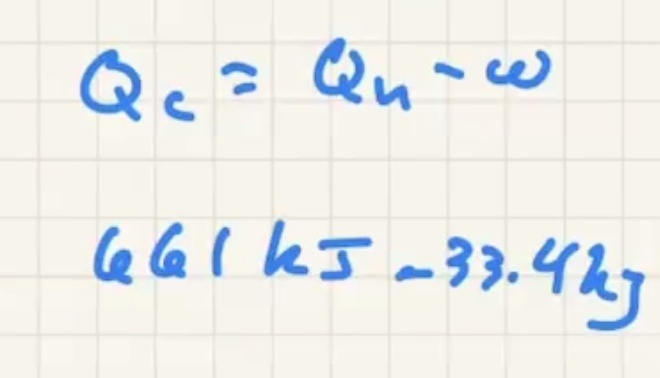 Qc = Qh - w
661 kJ - 33.4kJ